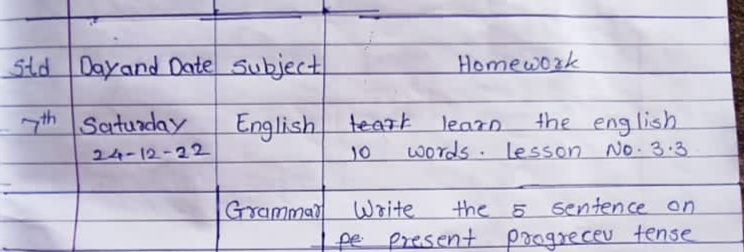 Std Day and Date Subject Homework
7th Saturday English learn the english
24-12-22 10 words. Lesson No. 3.3
Grammar Write the 5 sentence on
pe present progrecev tense